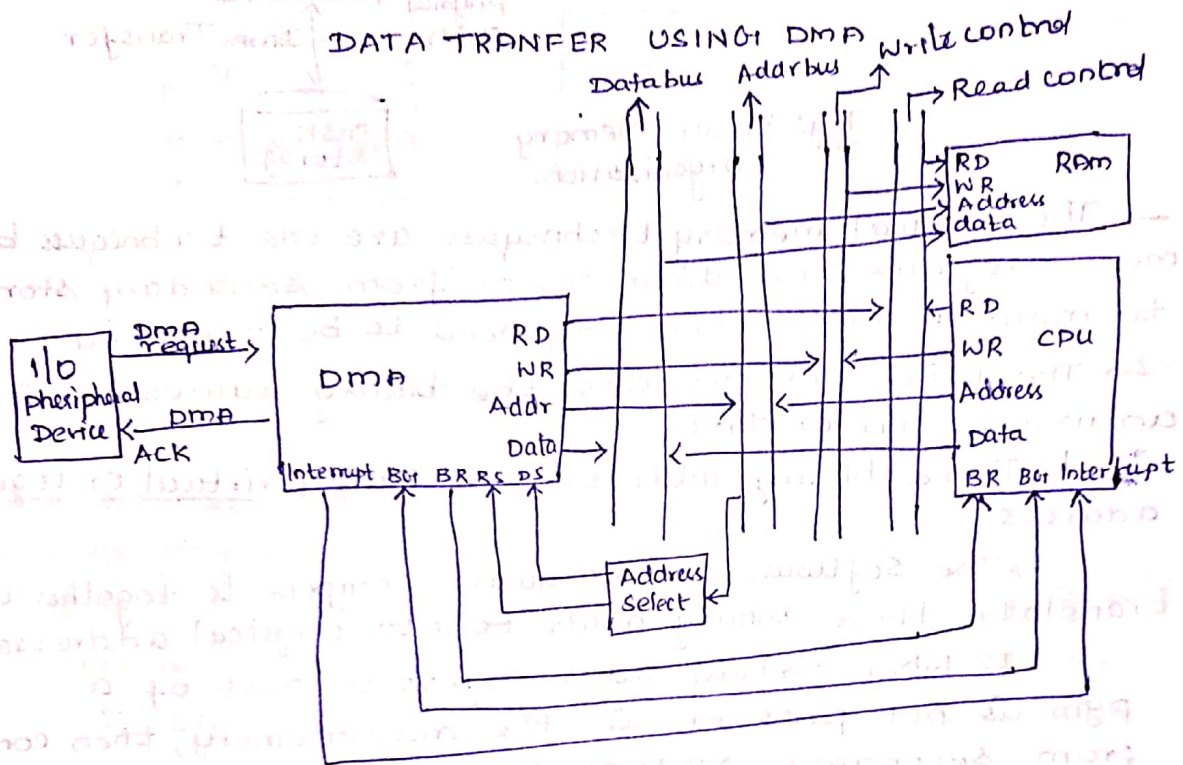 DATA TRANFER USING DMA
Write control
Databus
Addrbus
Read control
RD RAM
WR
Address
data
I/O
Pheriphdal
Device
DMA
request
DMA
ACK
DMA
RD
WR
Addr
Data
Interrupt BG BR RS DS
RD
CPU
WR
Address
Data
BR BG Interrupt
Address
Select